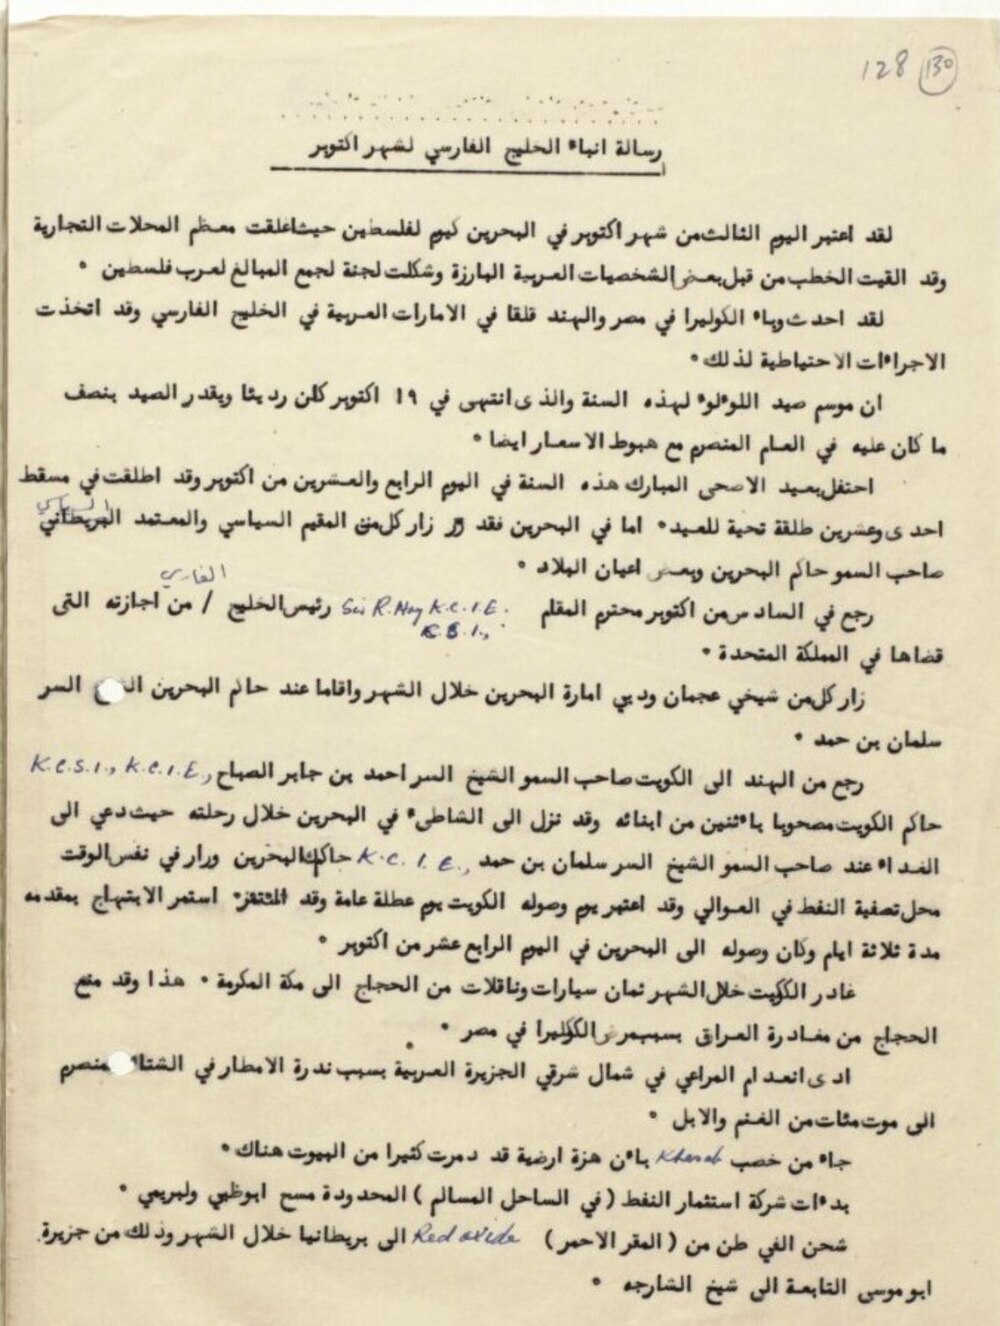 128 (130)
رسالة انباء الخليج الفارسي لشهر اكتوبر
لقد اعتبر اليوم الثالث من شهر اكتوبر في البحرين كيوم لفلسطين حيث اغلقت معظم المحلات التجارية
وقد القيت الخطب من قبل بعض الشخصيات العربية البارزة وشكلت لجنة لجمع المبالغ لعرب فلسطين ٠
لقد احدث وباء الكوليرا في مصر والهند قلقا في الامارات العربية في الخليج الفارسي وقد اتخذت
الاجراءات الاحتياطية لذلك ٠
ان موسم صيد اللوءلوء لهذه السنة والذى انتهى في ١٩ اكتوبر كان رديئا ويقدر الصيد بنصف
ما كان عليه في العام المنصرم مع هبوط الاسعار ايضا ٠
احتفل بعيد الاضحى المبارك هذه السنة في اليوم الرابع والعشرين من اكتوبر وقد اطلقت في مسقط
السياسي
احدى وعشرين طلقة تحية للعيد ٠ اما في البحرين فقد زار كل من المقيم السياسي والمعتمد البريطاني
صاحب السمو حاكم البحرين وبعض اعيان البلاد ٠
الفارسي
رجع في السادس من اكتوبر محترم المقام Sir R. Hay K.C.I.E. رئيس الخليج / من اجازته التى
C.S.I.,
قضاها في المملكة المتحدة ٠
زار كل من شيخي عجمان ودبي امارة البحرين خلال الشهر واقاما عند حاكم البحرين السر
سلمان بن حمد ٠
رجع من الهند الى الكويت صاحب السمو الشيخ السر احمد بن جابر الصباح K.C.S.I., K.C.I.E.,
حاكم الكويت مصحوبا باءثنين من ابنائه وقد نزل الى الشاطىء في البحرين خلال رحلته حيث دعي الى
الغداء عند صاحب السمو الشيخ السر سلمان بن حمد K.C.I.E., حاكم البحرين وزار في نفس الوقت
محل تصفية النفط في العوالي وقد اعتبر يوم وصوله الكويت يوم عطلة عامة وقد استمر الابتهاج بمقدمه
مدة ثلاثة ايام وكان وصوله الى البحرين في اليوم الرابع عشر من اكتوبر ٠
غادر الكويت خلال الشهر ثمان سيارات وناقلات من الحجاج الى مكة المكرمة ٠ هذا وقد منع
الحجاج من مغادرة العراق بسبب مرض الكوليرا في مصر ٠
ادى انعدام المراعي في شمال شرقي الجزيرة العربية بسبب ندرة الامطار في الشتاء المنصرم
الى موت مئات من الغنم والابل ٠
جاء من خصب Khasab باءن هزة ارضية قد دمرت كثيرا من البيوت هناك ٠
بدءات شركة استثمار النفط ( في الساحل المسالم ) المحدودة مسح ابوظبي ولبريمي ٠
شحن الفي طن من ( المقر الاحمر ) Red oxide الى بريطانيا خلال الشهر وذلك من جزيرة
ابو موسى التابعة الى شيخ الشارجه ٠